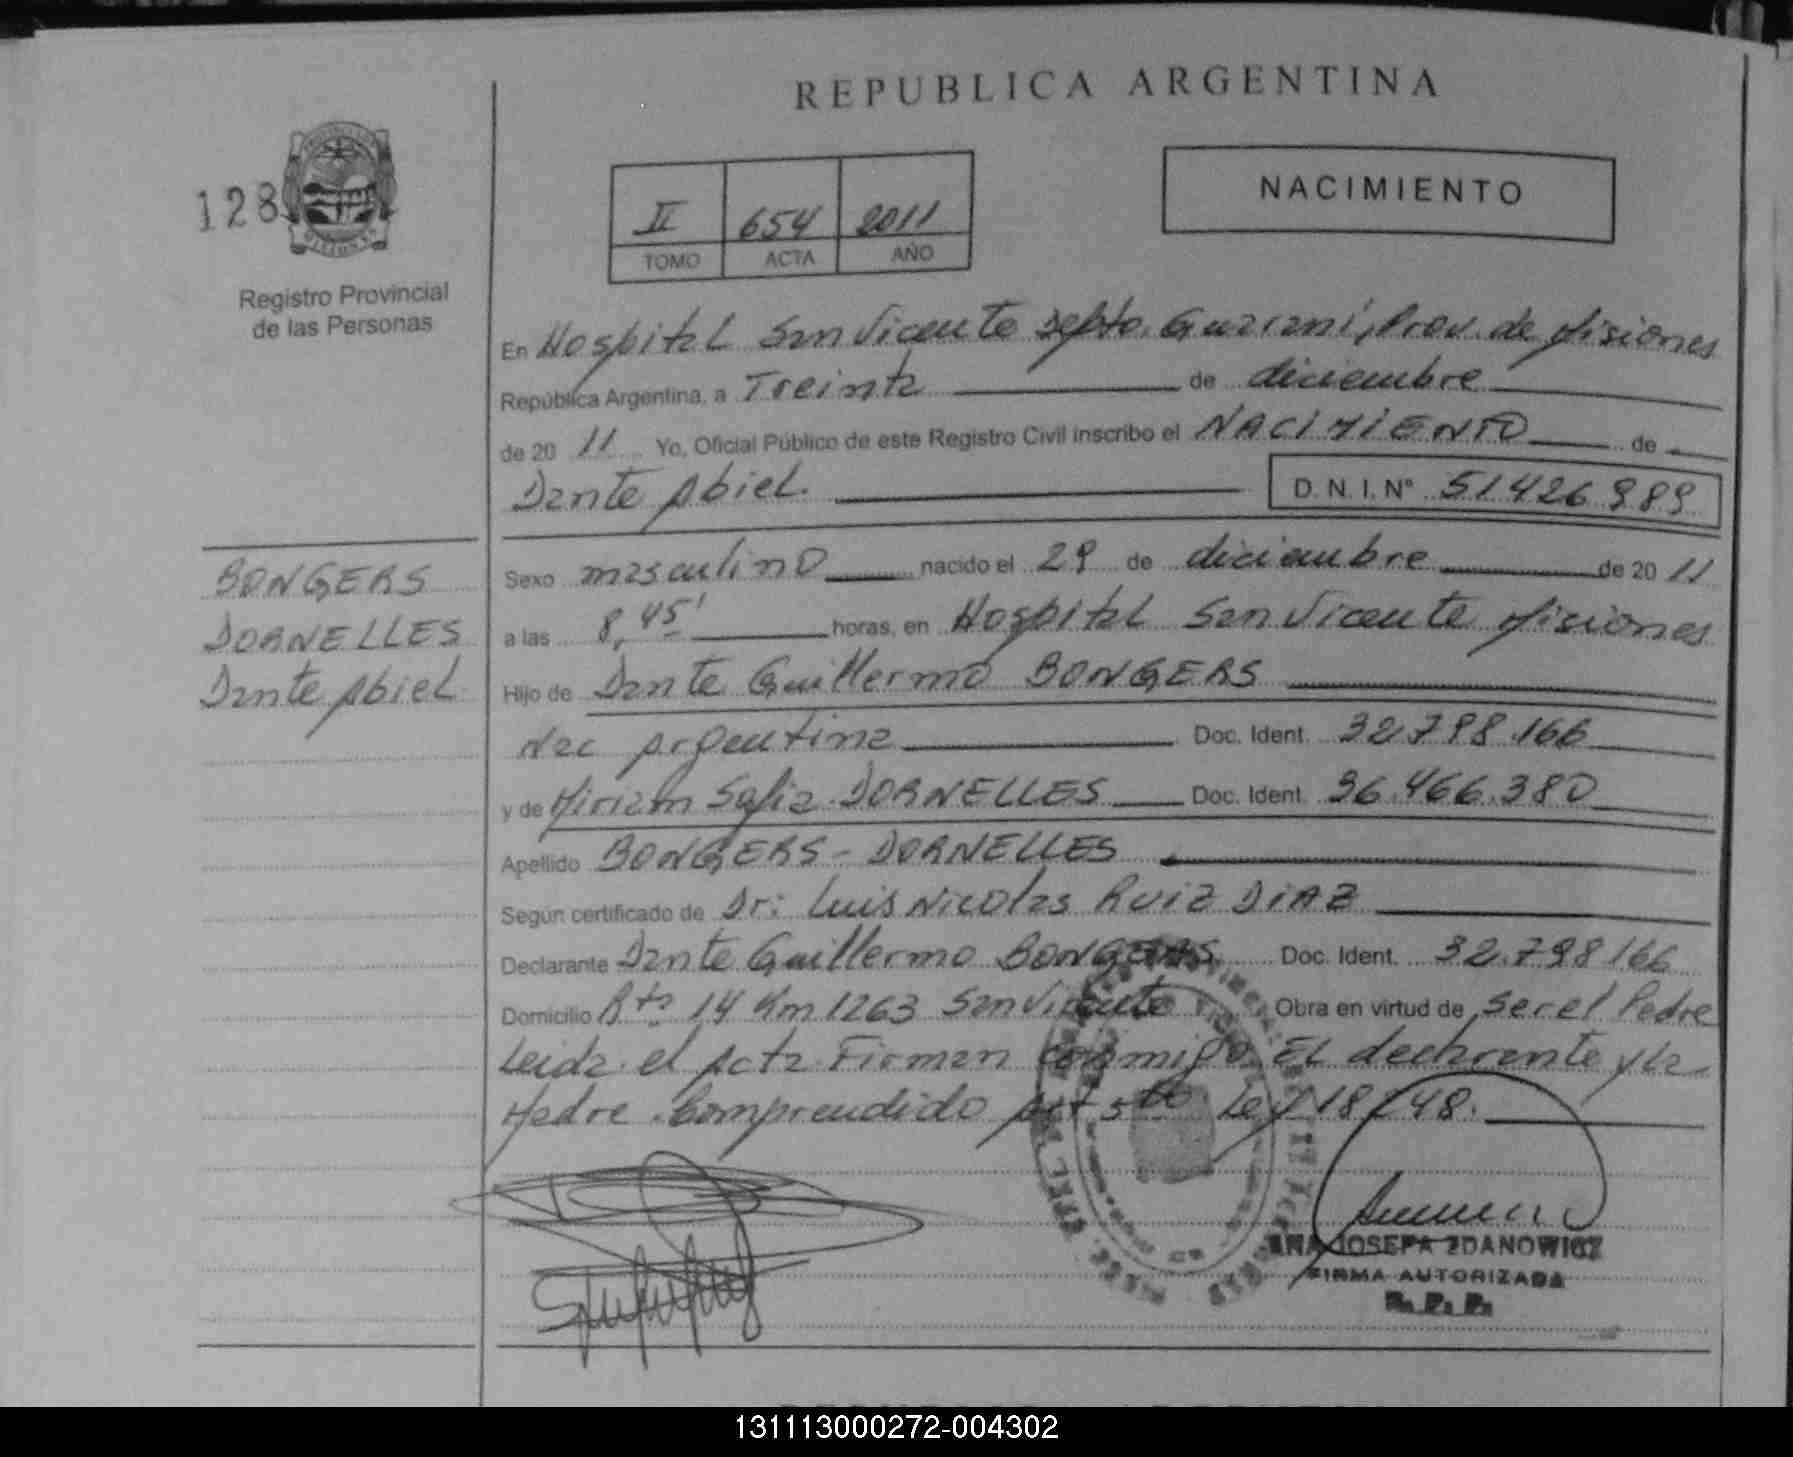 REPUBLICA ARGENTINA
128
II 654 2011
TOMO ACTA AÑO
NACIMIENTO
Registro Provincial
de las Personas
En Hospital San Vicente Depto. Guarani, Prov. de Misiones
República Argentina, a Treinta de diciembre
de 20 11 Yo, Oficial Público de este Registro Civil inscribo el NACIMIENTO de
Dante Abiel. D. N. I. Nº 51426989
BONGERS
DORNELLES
Dante Abiel
Sexo masculino nacido el 29 de diciembre de 20 11
a las 8,45' horas, en Hospital San Vicente Misiones
Hijo de Dante Guillermo BONGERS
Nac Argentina Doc. Ident. 32.798.166
y de Miriam Sofia DORNELLES Doc. Ident. 36.466.380
Apellido BONGERS - DORNELLES
Según certificado de Dr: Luis Nicolas RUIZ DIAZ
Declarante Dante Guillermo BONGERS Doc. Ident. 32.798166
Domicilio Rta 14 Km 1263 San Vicente Obra en virtud de ser el Padre
Leida el Acta Firman conmigo EL declarante y la
Madre. Comprendido Art 5to Ley 18248.
ANA JOSEFA ZDANOWICZ
FIRMA AUTORIZADA
R. P. P.
131113000272-004302